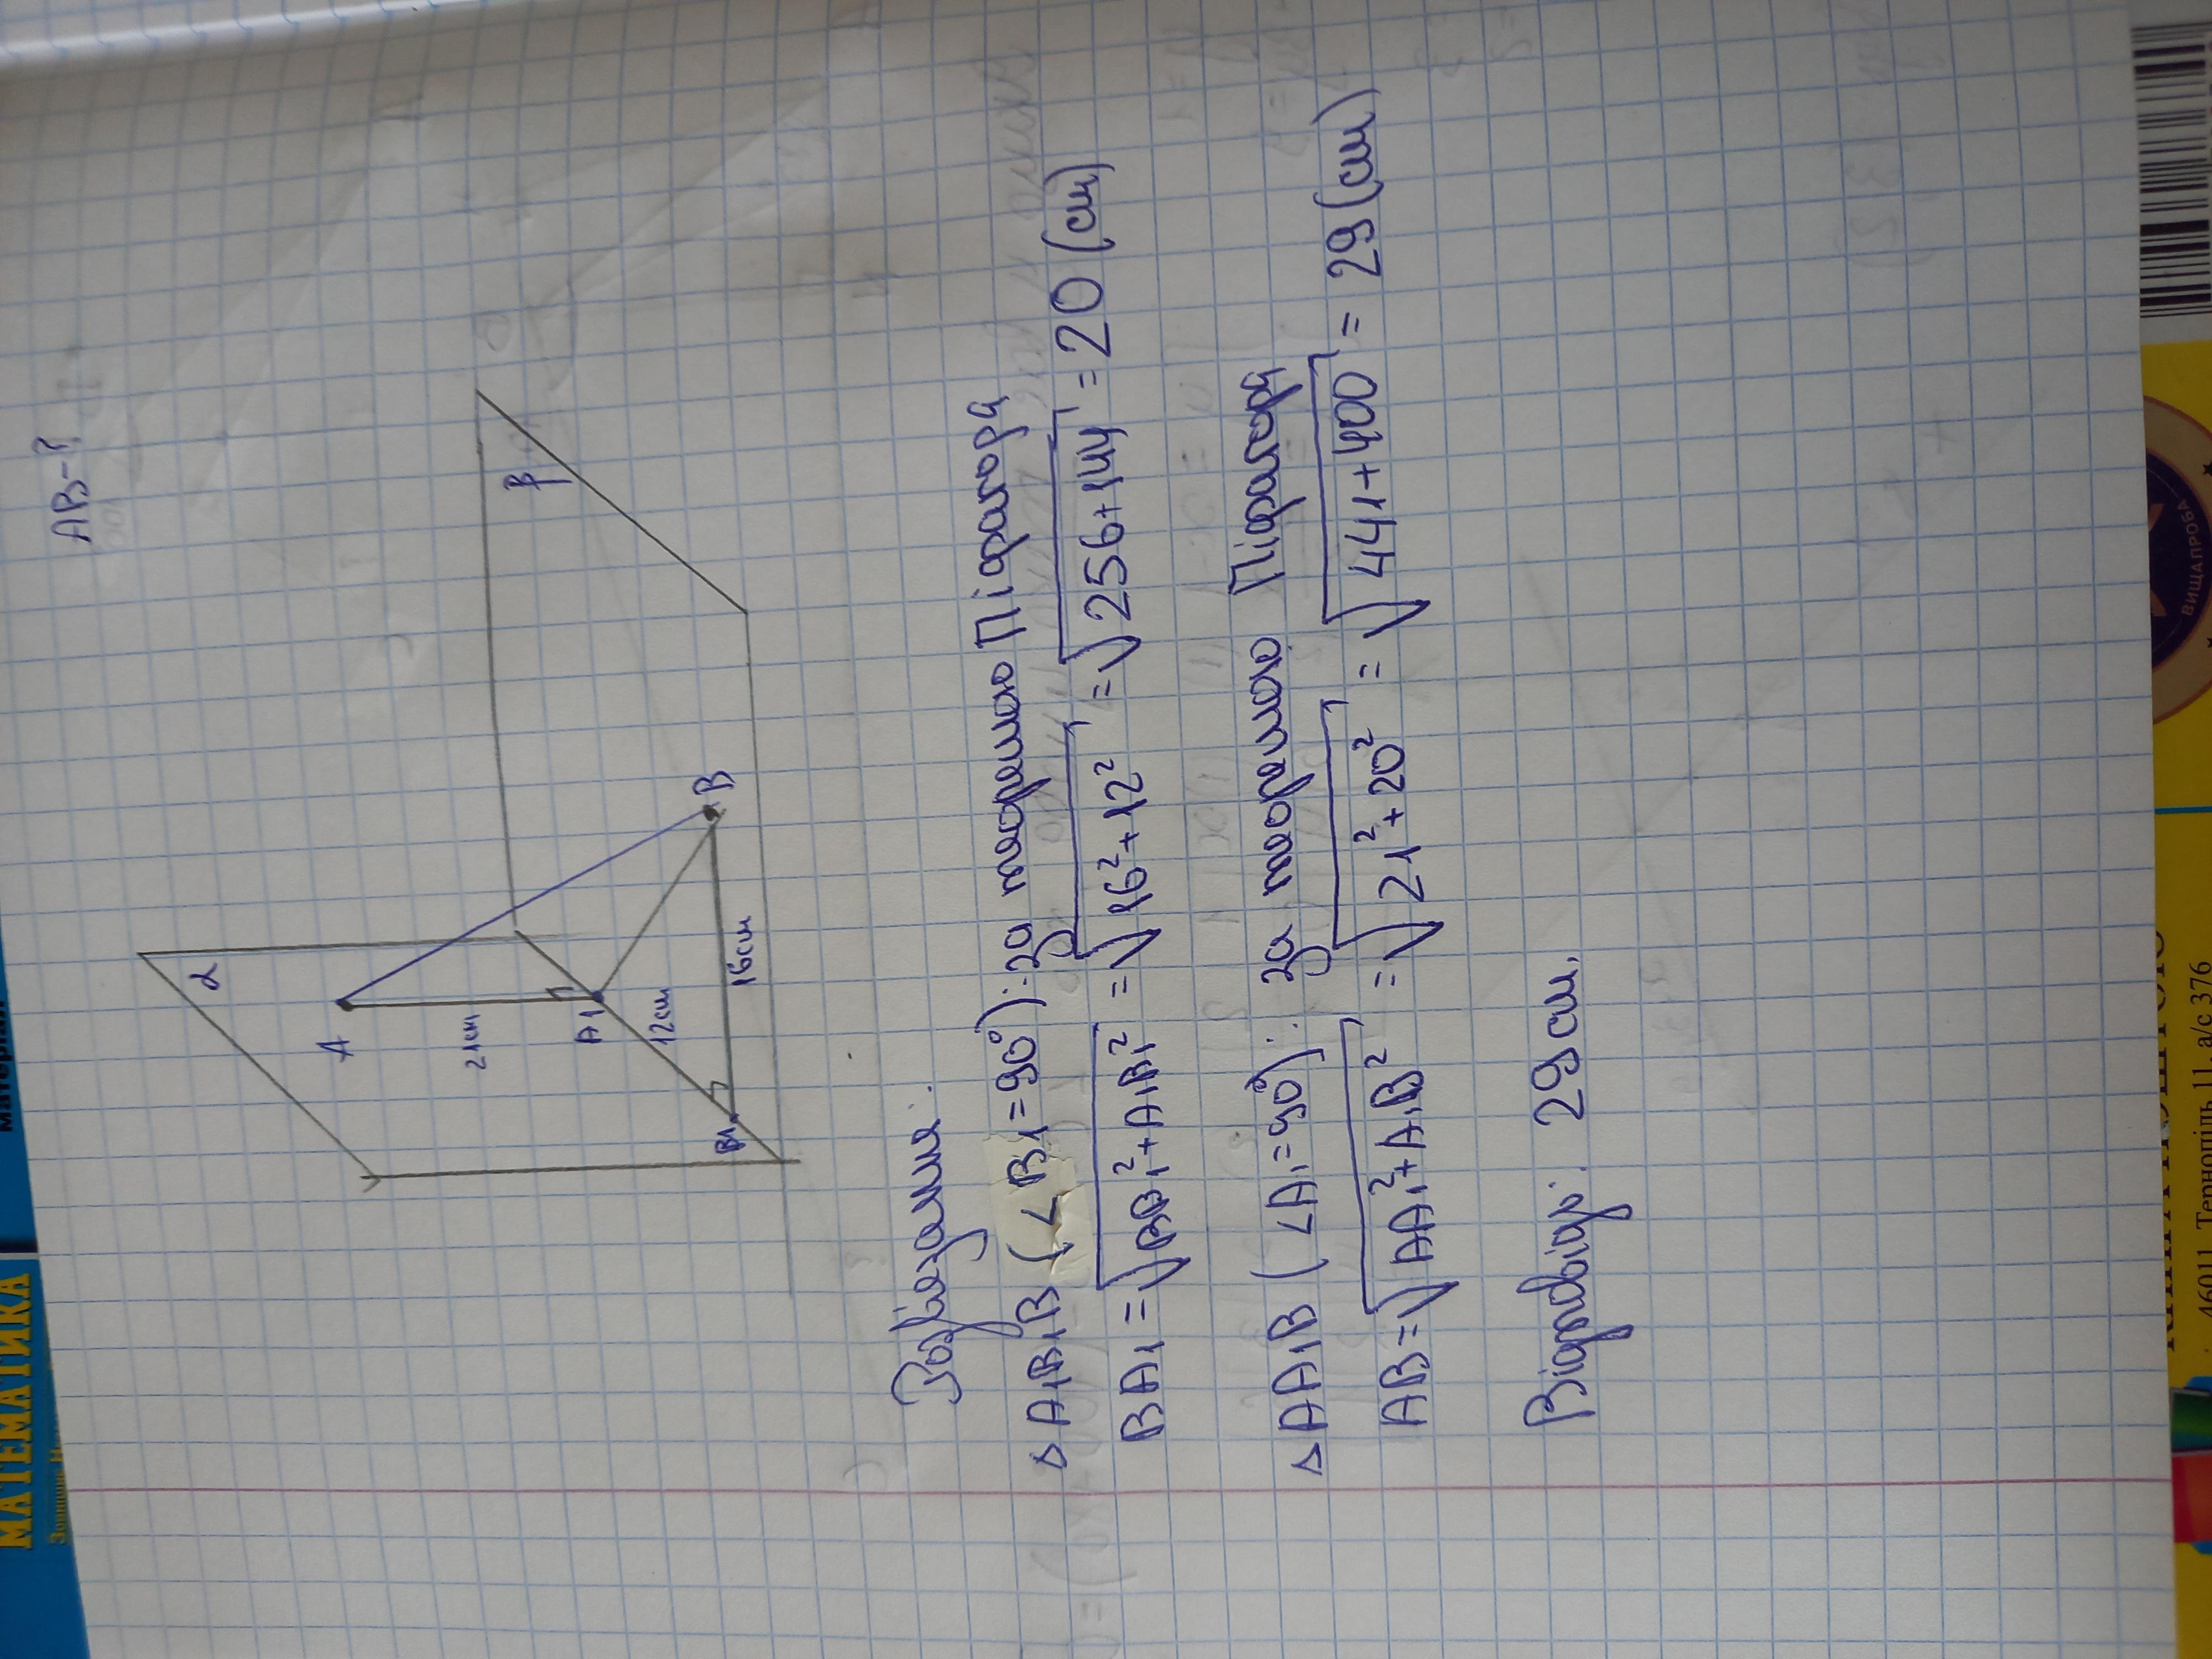 AB-?
α
β
A
21см
A1
12см
B1
16см
B
Розв'язання:
△A1B1B (∠B1=90°): за теоремою Піфагора
BA1 = √BB1²+A1B1² = √16²+12² = √256+144 = 20 (см)
△AA1B (∠A1=90°): за теоремою Піфагора
AB = √AA1²+A1B² = √21²+20² = √441+400 = 29 (см)
Відповідь: 29 см.
МАТЕМАТИКА
ВИЩА ПРОБА
46011, Тернопіль 11, а/с 376